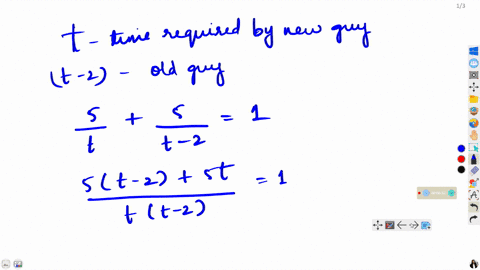 1/3
t - time required by new guy
(t-2) - old guy
5/t + 5/t-2 = 1
5(t-2) + 5t / t(t-2) = 1